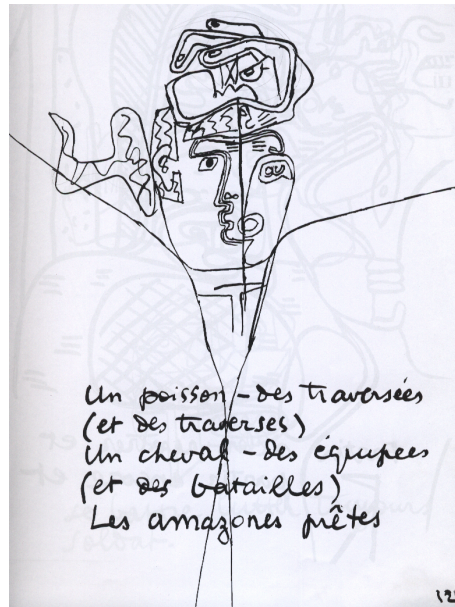 Un poisson - des traversées
(et des traverses)
Un cheval - des équipées
(et des batailles)
Les amazones prêtes